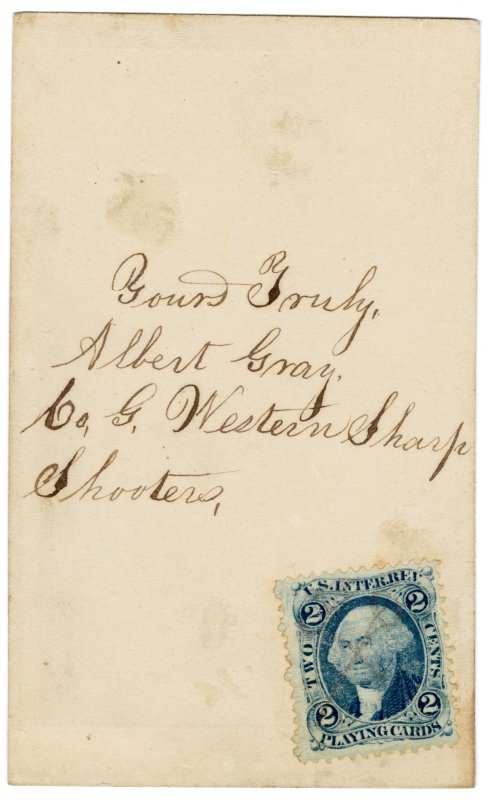 Yours Truly,
Albert Gray,
Co, G, Western Sharp
Shooters,
U.S. INTER. REV.
2 2
TWO CENTS
2 2
PLAYING CARDS